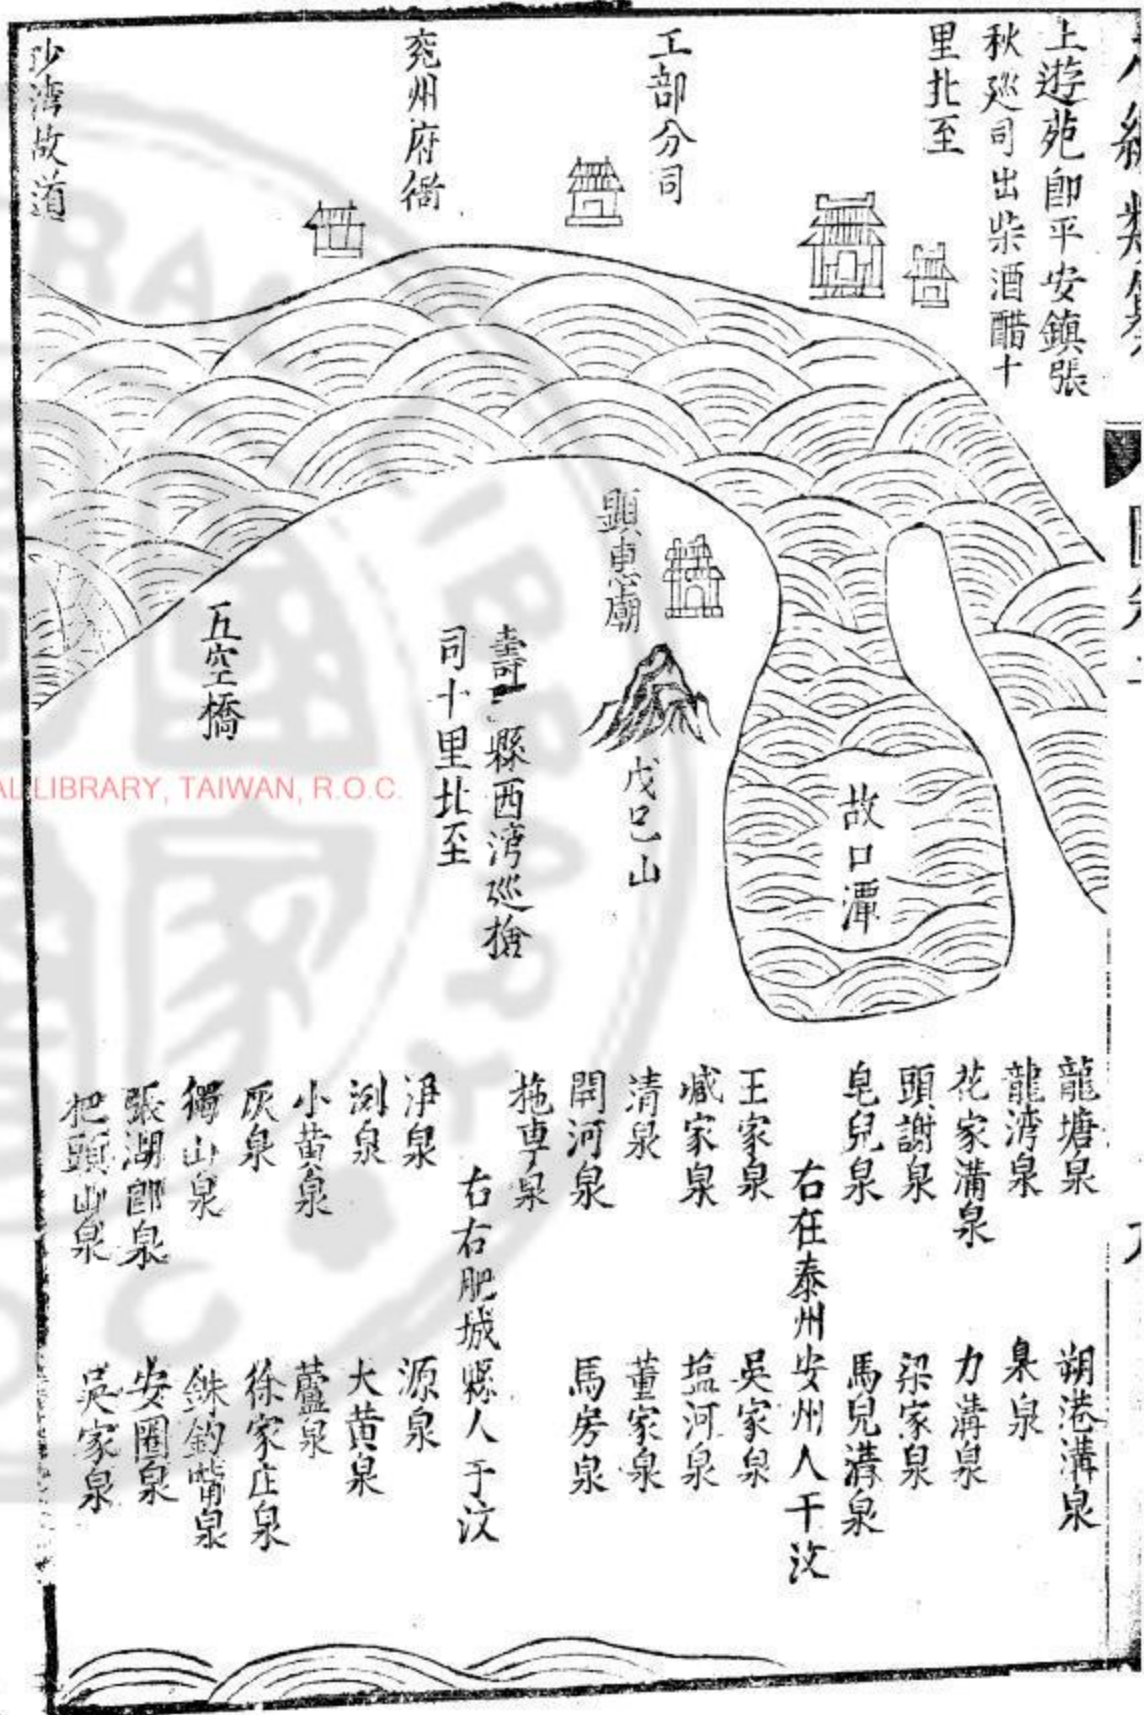 上遊苑即平安鎮張
秋廵司出柴酒醋十
里北至
工部分司
兗州府衙
沙灣故道
顯惠廟
戊已山
故口潭
縣西湾廵檢
司十里北至
五空橋
龍塘泉
朔港溝泉
龍湾泉
臭泉
花家溝泉
力溝泉
頭謝泉
梁家泉
皂兒泉
馬兒溝泉
右在泰州安州人干汶
王家泉
吳家泉
臧家泉
塩河泉
清泉
董家泉
開河泉
馬房泉
拖車泉
右右肥城縣人于汶
淨泉
源泉
浏泉
大黄泉
小黄泉
蘆泉
灰泉
徐家庄泉
獨山泉
銖鈎嘴泉
張湖郎泉
安圈泉
把頭山泉
吳家泉
AL LIBRARY, TAIWAN, R.O.C.